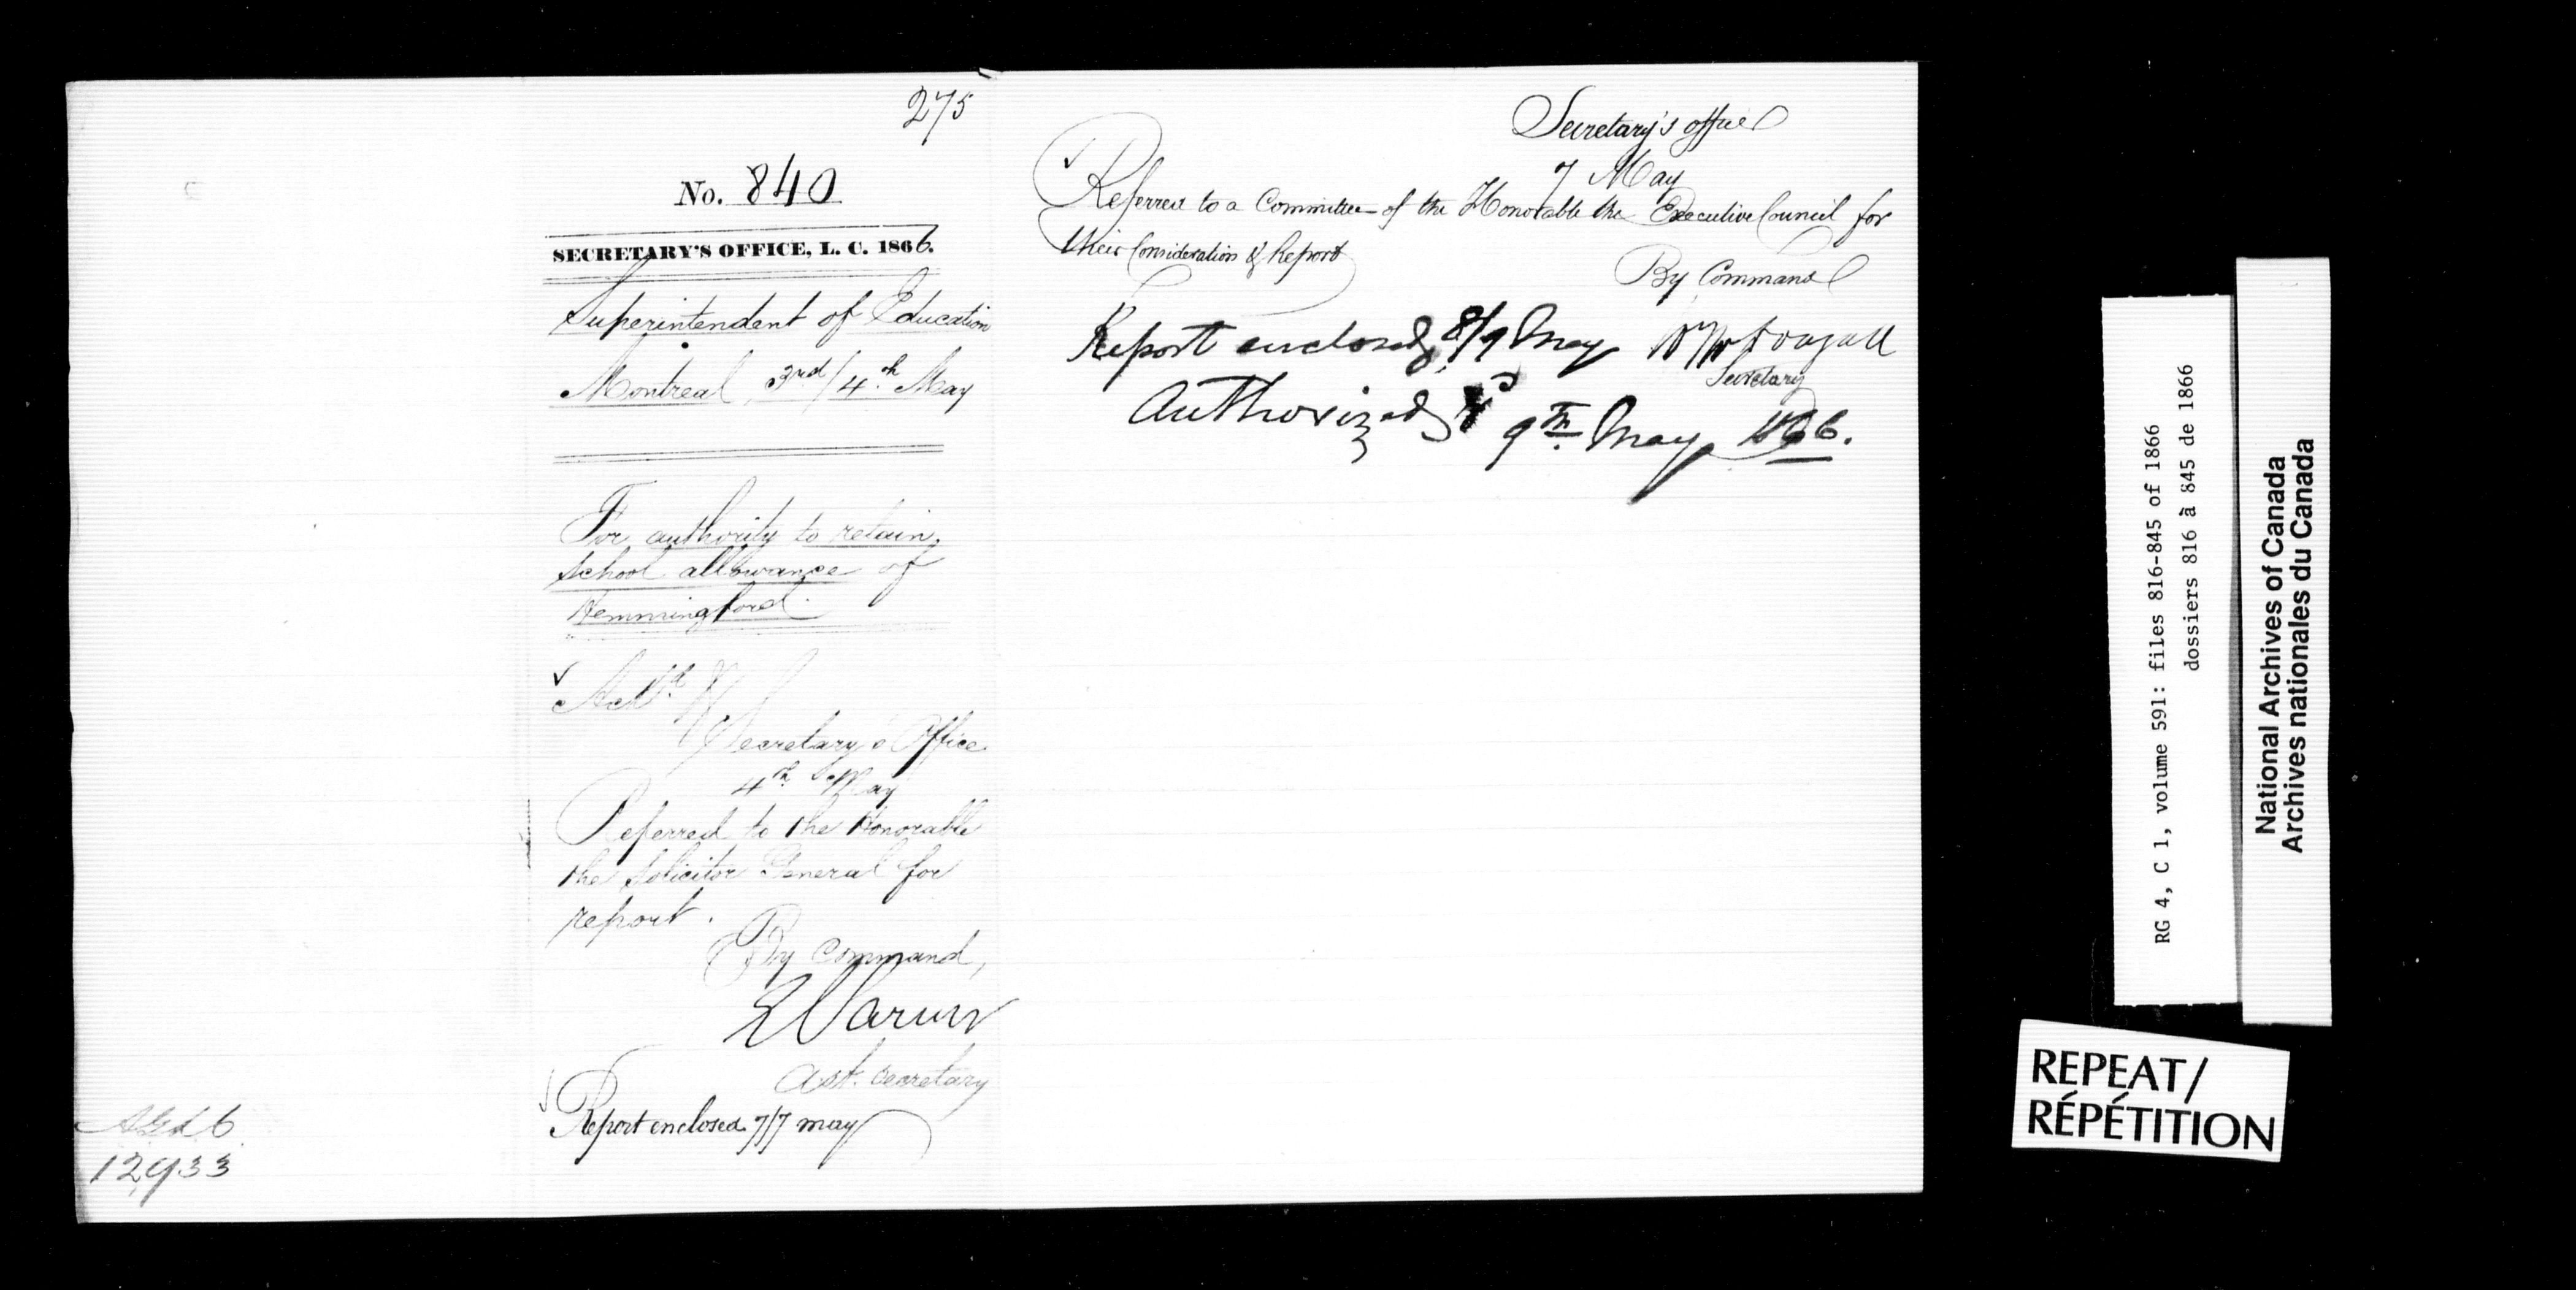 275
No. 840
SECRETARY'S OFFICE, L. C. 1866.
Superintendent of Education
Montreal, 3rd/4th May
For authority to retain
School allowance of
Hemmingford.
Ackd
Secretary's Office
4th May
Referred to the Honorable
the Solicitor General for
report.
By Command,
Ast. Secretary
Report enclosed 7/7 may
12,933
Secretary's office
7 May
Referred to a Committee of the Honorable the Executive Council for
their Consideration & Report
By Command
Report enclosed, 8/9 May
Wm McDougall
Secretary
Authorized
9th May 1866.
RG 4, C 1, volume 591: files 816-845 of 1866
dossiers 816 à 845 de 1866
National Archives of Canada
Archives nationales du Canada
REPEAT/
RÉPÉTITION